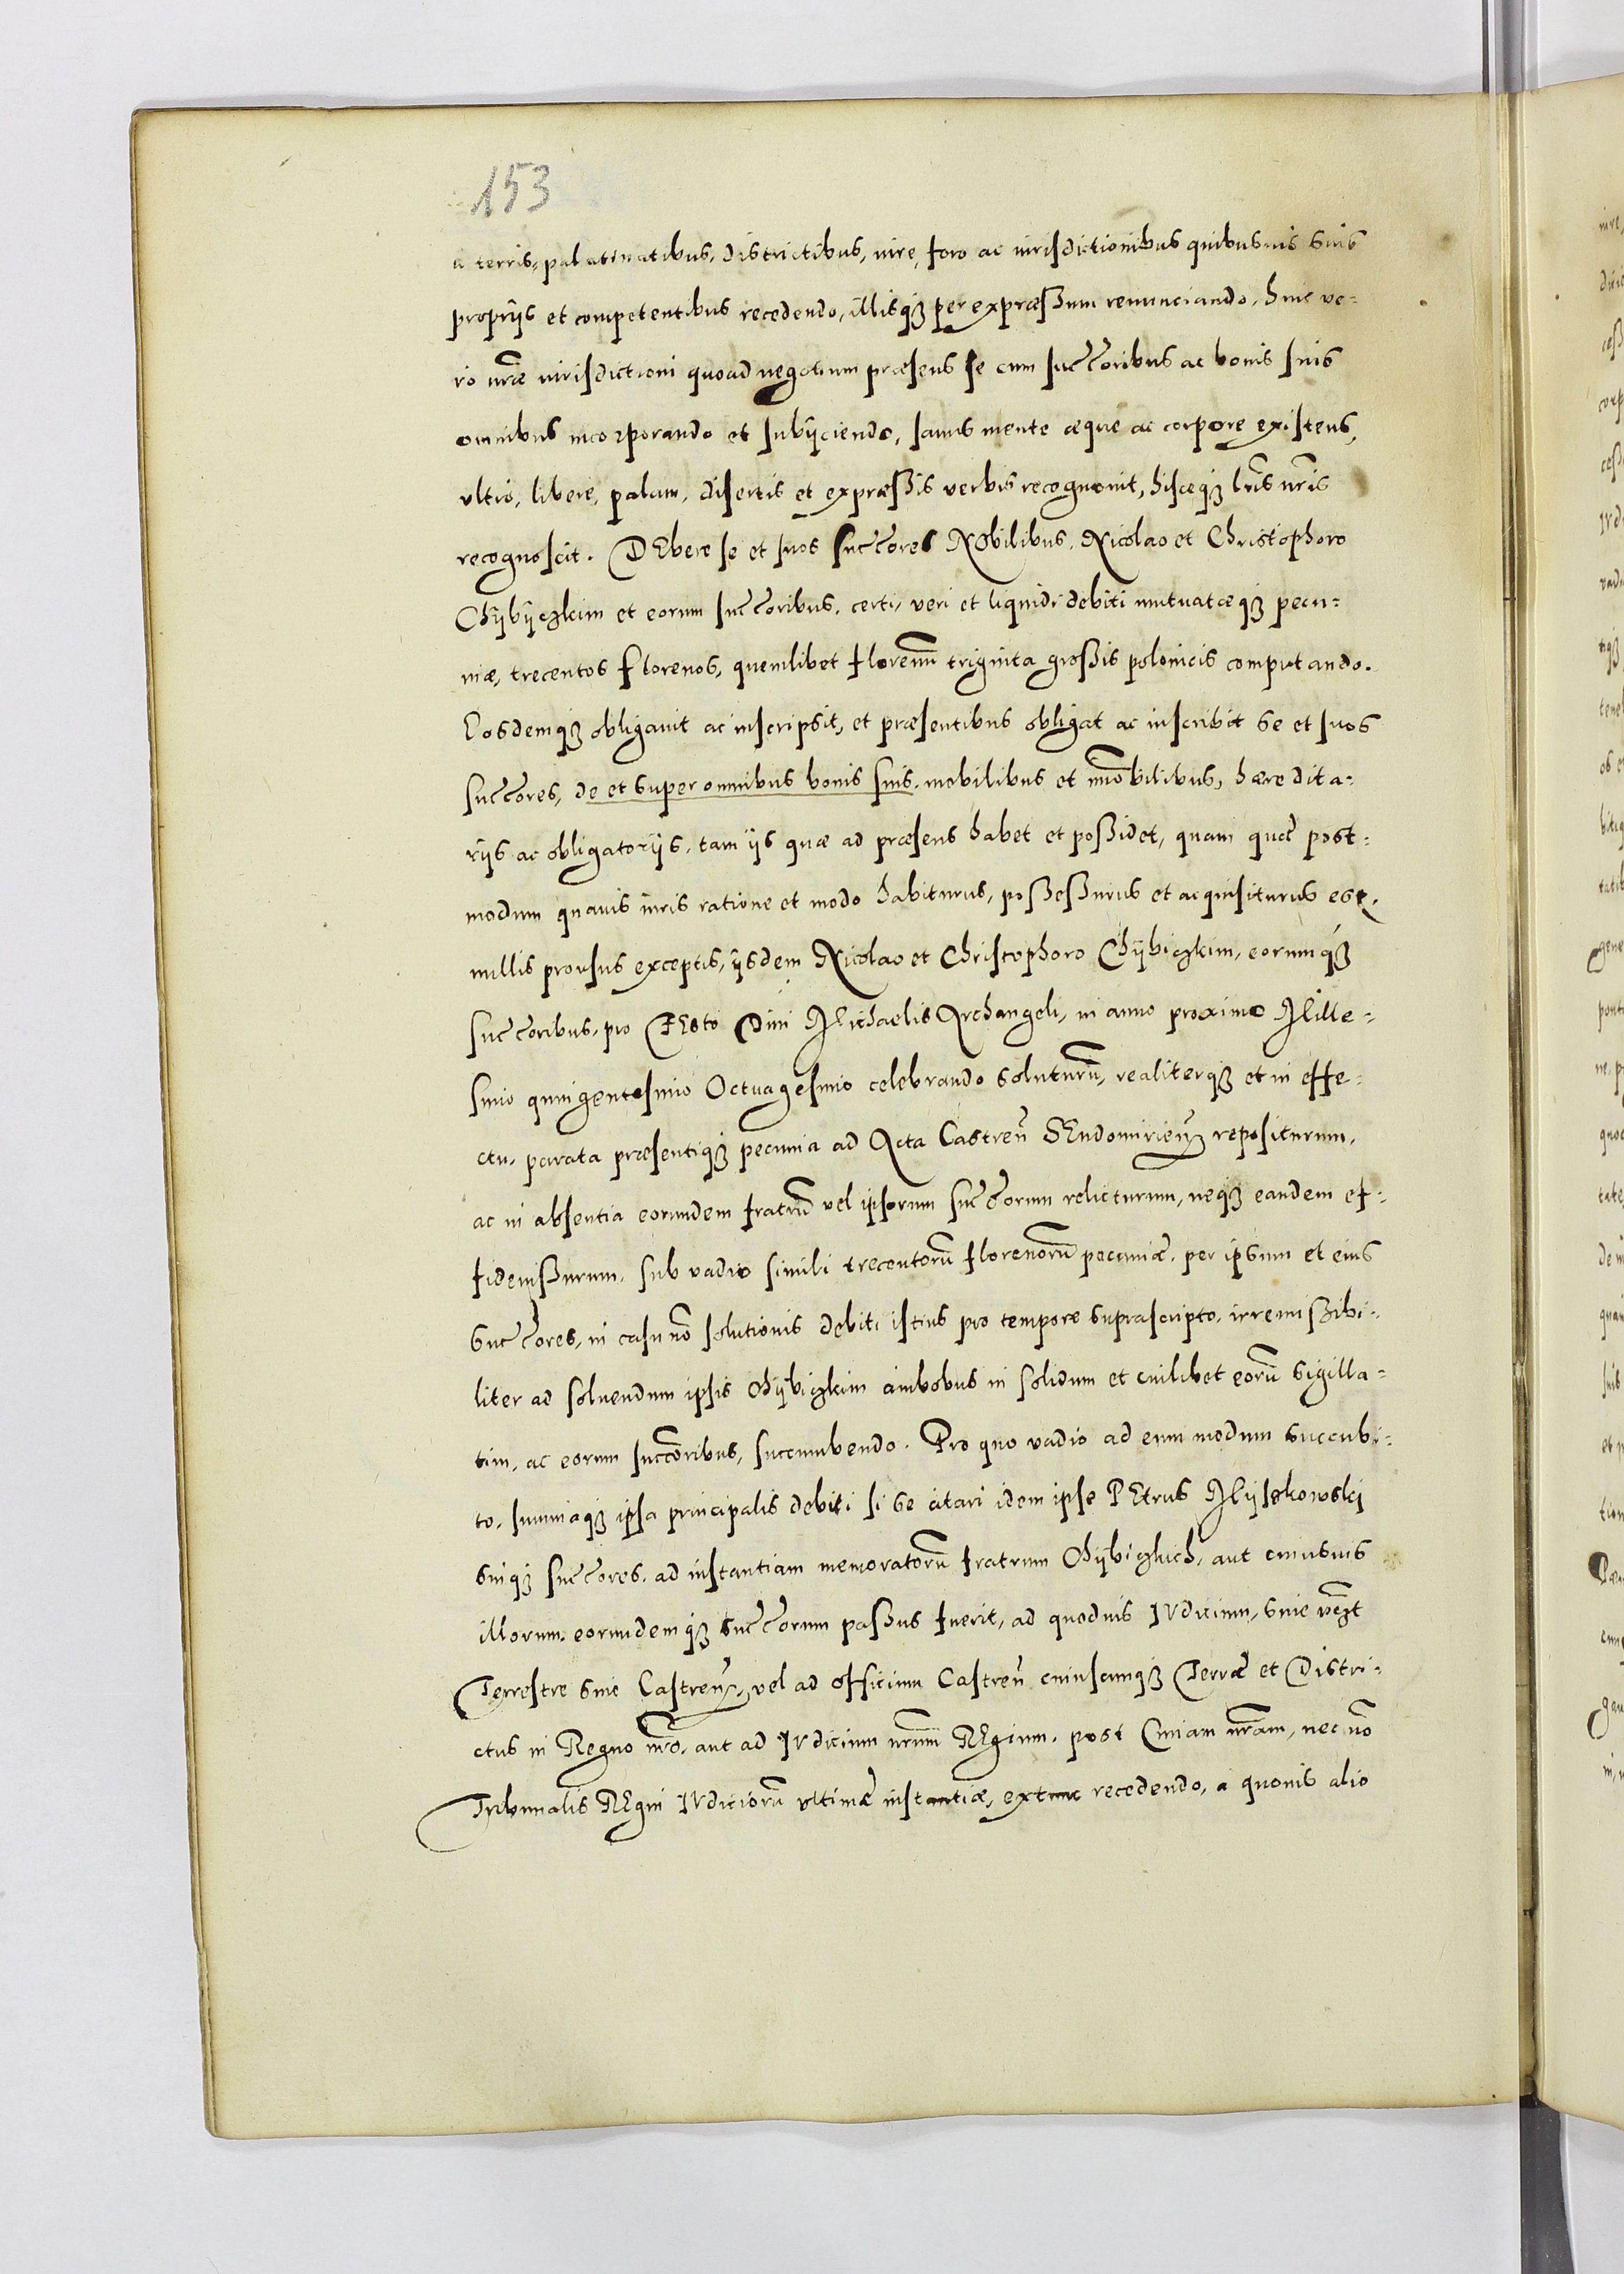 153
a terris, palatinatibus, districtibus, iure, foro ac iurisdictionibus quibusuis suis
proprijs et competentibus recedendo, illisq́ʒ per expræssum renunciando, huic ve-
ro nr̃æ iurisdictioni quoad negotium præsens se cum succ̃oribus ac bonis suis
omnibus incorporando et subijciendo, sanus mente æque ac corpore existens,
vltro, libere, palam, disertis et expræssis verbis recognouit, hisceqʒ lr̃is nr̃is
recognoscit. DEbere se et suos succ̃ores NObilibus, Nicolao et Christophoro
Chÿbÿczkim et eorum succ̃oribus, certi, veri et liquidi debiti mutuatæqʒ pecu-
niæ, trecentos florenos, quemlibet florenũ triginta grossis polonicis computando.
Eosdemqʒ obligauit ac inscripsit, et præsentibus obligat ac inscribit se et suos
succ̃ores, de et super omnibus bonis suis, mobilibus et im̃obilibus, hæredita-
rijs ac obligatorijs, tam ijs quæ ad præsens habet et possidet, quam quæ post-
modum quauis iuris ratione et modo habiturus, possessurus et acquisiturus est,
nullis prorsus exceptis, ijsdem Nicolao et Christophoro Chÿbiczkim, eorumq́ʒ
succ̃oribus, pro FEsto Diui Michaelis Archangeli, in anno proximo Mille-
simo quingentesimo Octuagesimo celebrando soluturũ, realiterqʒ et in effe-
ctu, parata præsentiqʒ pecunia ad Acta Castreñ SEndomirieñ repositurum,
ac in absentia eorundem fratrũ vel ipsorum succ̃orum relicturum, neqʒ eandem ef-
fidemssurum, sub vadio simili trecentorũ florenorũ pecuniæ, per ipsum et eius
succ̃ores, in casu nõ solutionis debiti istius pro tempore suprascripto, irremissibi-
liter ad soluendum ipsis Chÿbiczkim ambobus in solidum et cuilibet eorũ sigilla-
tim, ac eorum succ̃oribus, succumbendo. Pro quo vadio ad eum modum succubi-
to, summaqʒ ipsa principalis debiti si se citari idem ipse PEtrus Mÿszkowski
suiqʒ succ̃ores, ad instantiam memoratorũ fratrum Chÿbiczkich, aut cuiusuis
illorum, eorundemqʒ succ̃orum passus fuerit, ad quoduis IVdicium, siue
Terrestre siue Castreñ, vel ad officium Castreñ cuiuscumqʒ Terræ et Distri-
ctus in Regno nr̃o, aut ad IVdicium nr̃um REgium, post Curiam nr̃am, nec nõ
Tribunalis REgni IVdiciorũ vltimæ instantiæ, extunc recedendo, a quouis alio